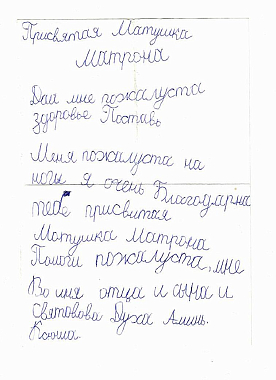 Присвятая Матушка
Матрона
Даа мне пожалуста
здоровье Поставь
Меня пожалуста на
ноги я очень Благодарна
тебе присвитая
Матушка Матрона
Помоги пожалуста, мне
Во имя отца и сына и
святовова Духа Аминь.
Ксюша.